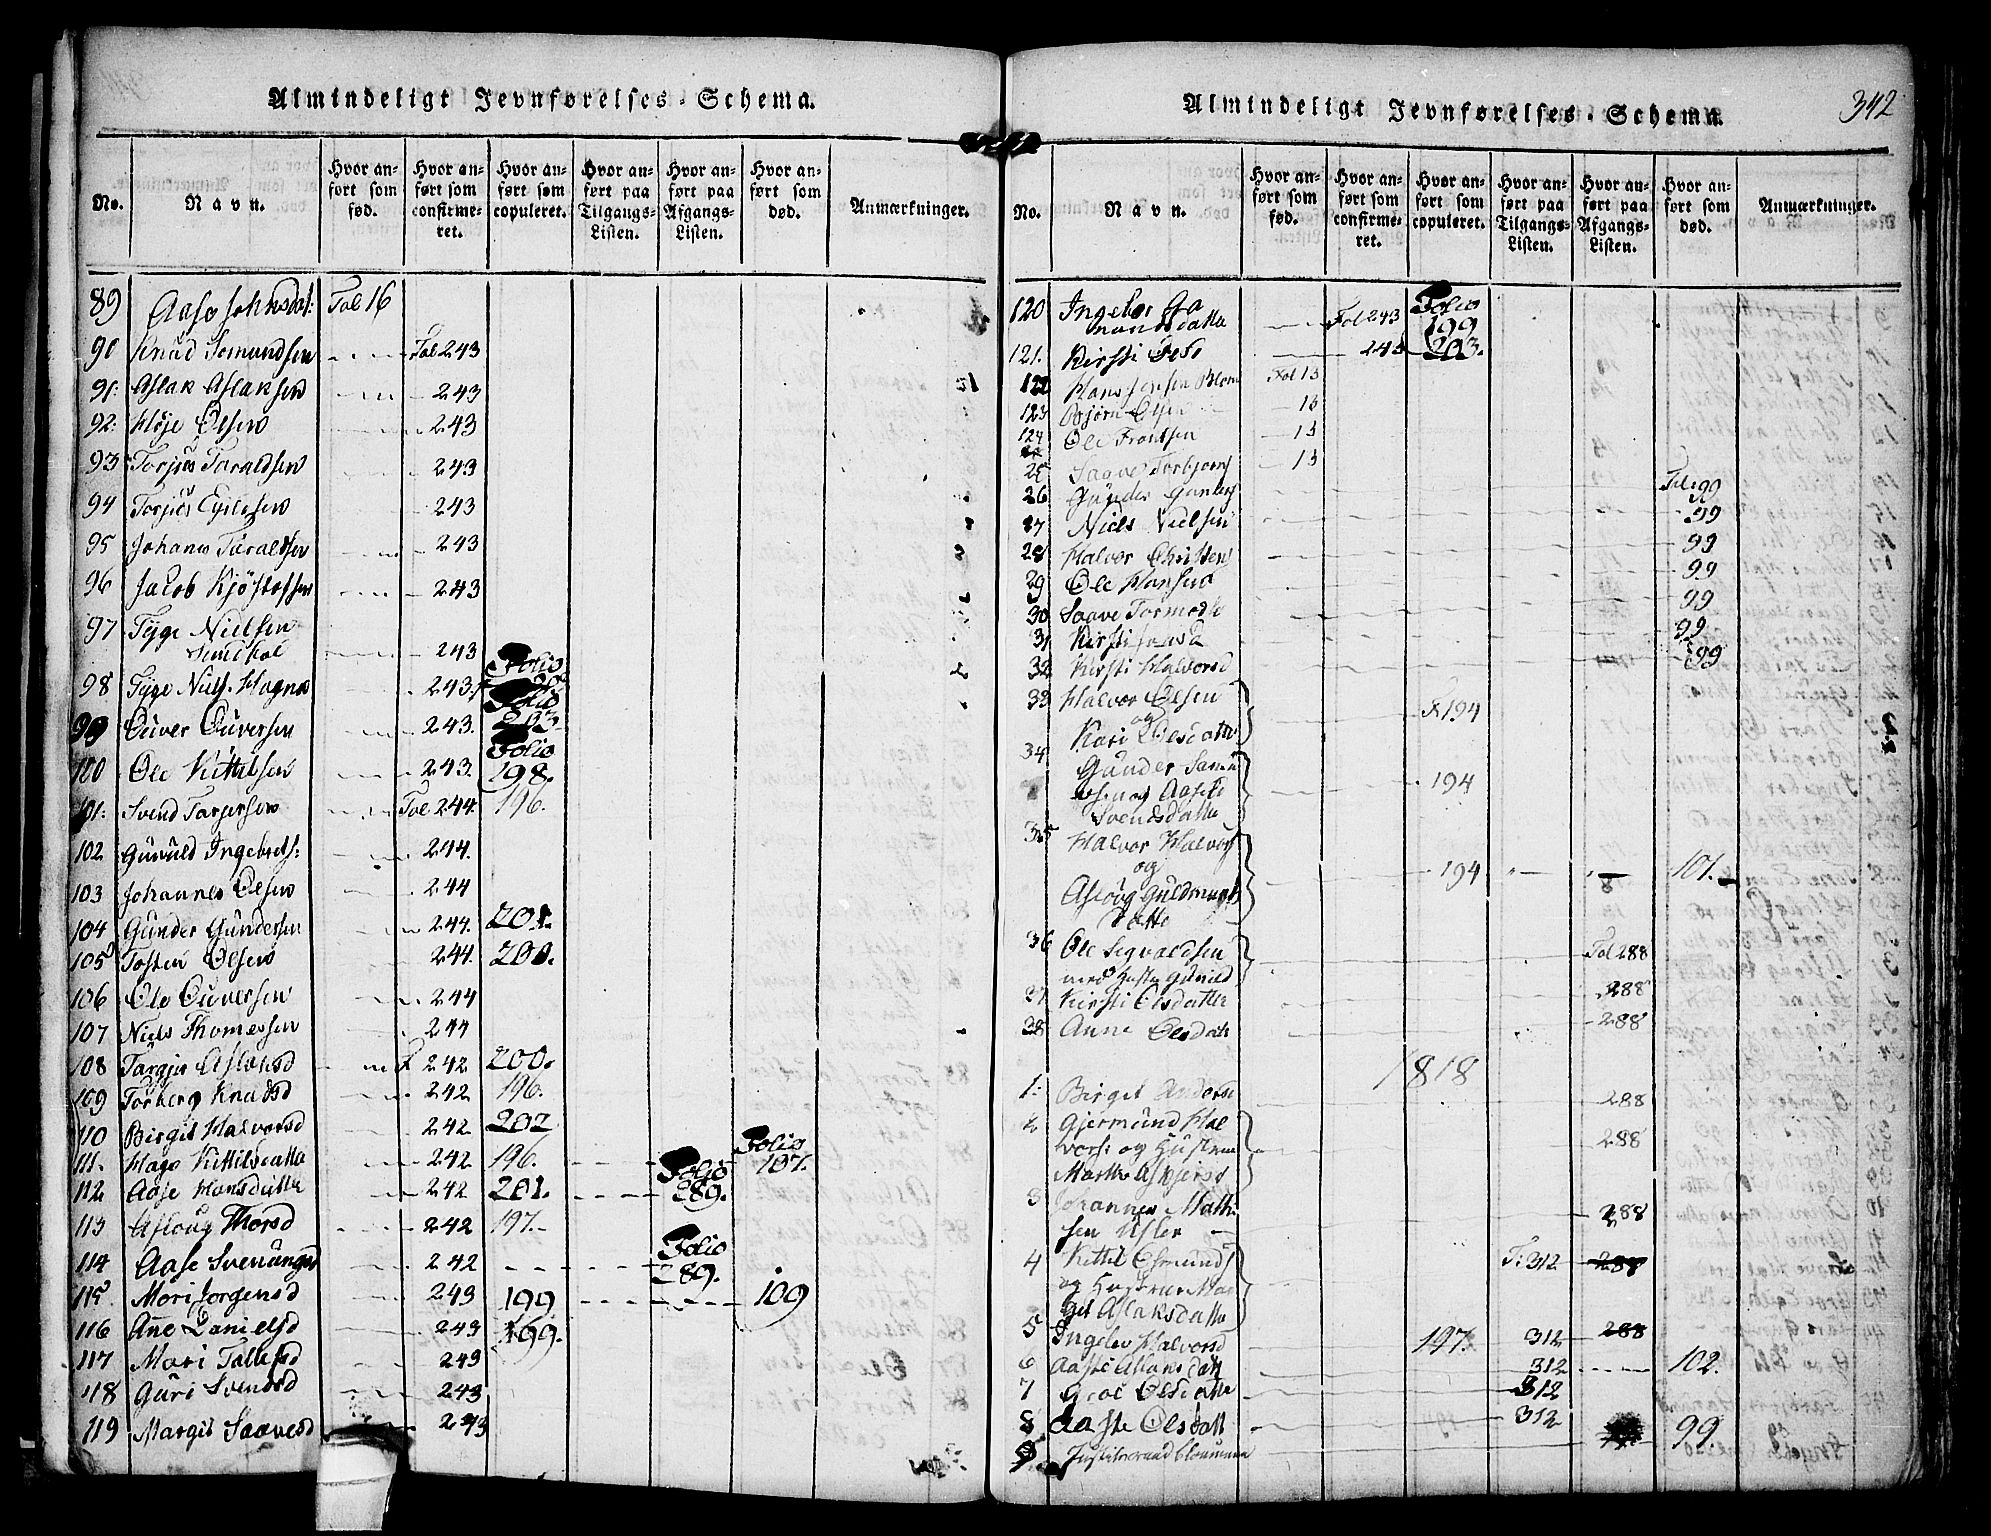 Almindeligt Jevnførelses-Schema.
No.
Navn.
Hvor anført som fød.
Hvor anført som confirmeret.
Hvor anført som copuleret.
Hvor anført paa Tilgangs-Listen.
Hvor anført paa Afgangs-Listen.
Hvor anført som død.
Anmærkninger.
89 Aase Johnsdat: Fol 16
90 Knud Somundsen Fol 243
91: Aslak Aslaksen 243
92: Høje Olsen 243
93 Torjus Taraldsen 243
94 Torjus Egilssen 243
95 Johans Taraldsen 243
96 Jacob Kjøstofsen 243
97 Tyge Nielsen 243
98 Tyge Niels. Hagna 243. Folio
99 Ouver Ouversen 243. Folio 203
100 Ole Kittilsen 243. Folio 198.
101: Svend Tarjersen Fol 244. 196.
102 Guvuld Ingebrets: 244.
103 Johannes Olsen 244
104 Gunder Gundersen 244. 201.
105 Tosten Olsen 244. 200.
106 Ole Ouversen 244
107 Niels Thomessen 244
108 Targjer Aslaksd F 242 200.
109 Torberg Knudsd 242 196.
110 Birgit Halvorsd 242 202
111. Hago Kittilsdatter 242 196. Folio 107.
112 Aase Hansdatter 242 201. Folio 289.
113 Aslaug Thorsd 242 197.
114 Aase Svenungsd 242 Folio 289.
115 Mari Jorgensd 243 199 109
116 Ane Danielsd 243 199.
117 Mari Tallefsd 243
118 Guri Svendsd 243
119 Margit Saavesd 243
Almindeligt Jevnførelses-Schema.
342
No.
Navn.
Hvor anført som fød.
Hvor anført som confirmeret.
Hvor anført som copuleret.
Hvor anført paa Tilgangs-Listen.
Hvor anført paa Afgangs-Listen.
Hvor anført som død.
Anmærkninger.
120 Ingebor
mundsdatter Fol 243 Folio 199
121. Kirsti 243 203.
122 Hans Jensen Blom Fol 13
123 Bjørn Olsen 13
124 Ole Frantsen 13
25 Saave Torbjorns 13
26 Gunder Gunders Fol: 99
27 Niels Nielsen 99
28 Halvor Christens 99
29 Ole Hansen 99
30 Saave Tormods 99
31 Kirsti 99
32 Kirsti Halvorsd 99
33 Halvor Olsen
og F 194
Kari Olsdatter
34 Gunder Samu
elsen og Aaste 194
Svendsdatter
35 Halvor Halvors
og 194 101.
Aslaug Guldmunds
datter
36 Ole Sigvaldsen Fol 288
med Hustru Gunild
37 Kirsti Olsdatter 288
38 Anne Olsdatt 288
1818
1: Birgit Anders 288
2 Gjermund Hal
vors: og Hustrue 288
Marthe Asbjørsd
3 Johannes Math
sen Usler 288
4 Kittil Esmunds F: 312 288
og Hustrue Mar
git Aslaksdatter
5 Ingeleu Halvorsd 197. 312 288
6 Aaste Hansdatt 312 102.
7 Groe Olsdatter 312
8 Aaste Olsdatt 312 99.